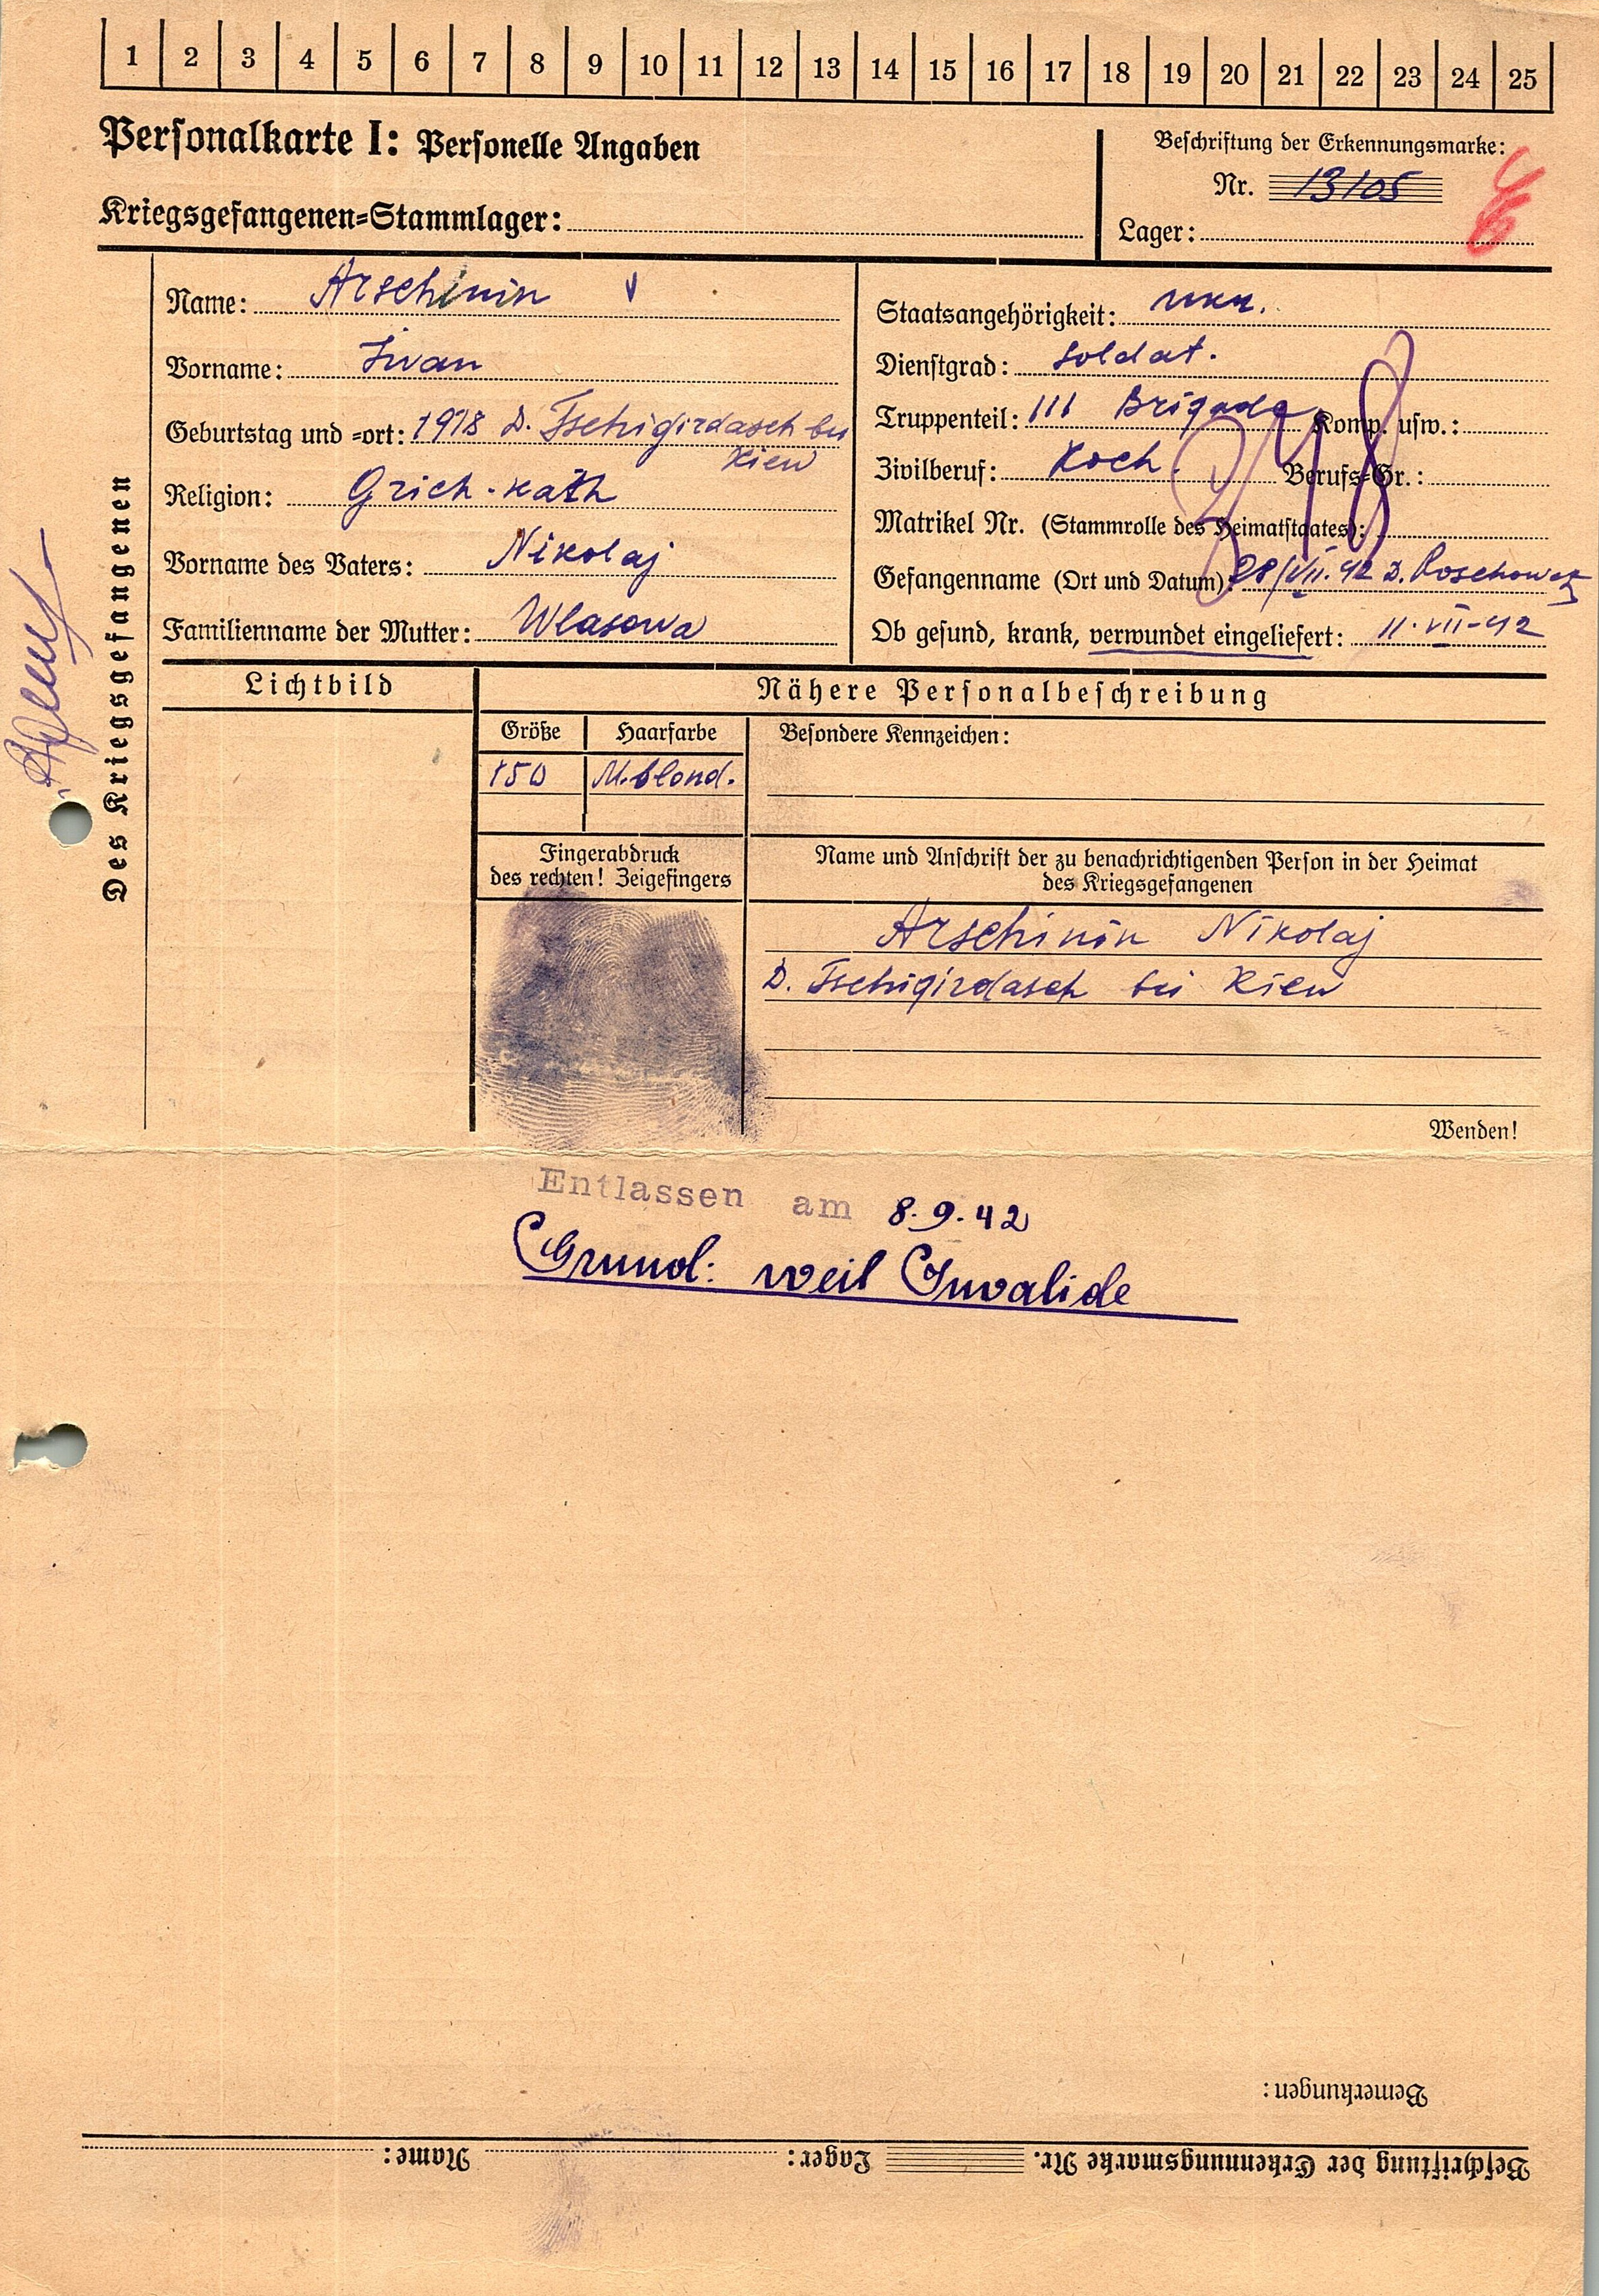 1 2 3 4 5 6 7 8 9 10 11 12 13 14 15 16 17 18 19 20 21 22 23 24 25
Personalkarte I: Personelle Angaben
Kriegsgefangenen=Stammlager:
Beschriftung der Erkennungsmarke:
Nr. 13105
Lager:
Des Kriegsgefangenen
Name: Arschinin
Vorname: Iwan
Geburtstag und =ort: 1918 D. Tschigirdasch bei
Kiew
Religion: Grich.-kath
Vorname des Vaters: Nikolaj
Familienname der Mutter: Wlasowa
Staatsangehörigkeit: ukr.
Dienstgrad: Soldat.
Truppenteil: 111 Brigade Komp. usw.:
Zivilberuf: Koch. Berufs=Gr.:
Matrikel Nr. (Stammrolle des Heimatstaates):
348
Gefangenname (Ort und Datum): 28/VII.42 D.
Ob gesund, krank, verwundet eingeliefert: 11.VII-42
Lichtbild
Nähere Personalbeschreibung
Größe Haarfarbe Besondere Kennzeichen:
150 M.blond.
Fingerabdruck
des rechten! Zeigefingers
Name und Anschrift der zu benachrichtigenden Person in der Heimat
des Kriegsgefangenen
Arschinin Nikolaj
D. Tschigirdasch bei Kiew
Wenden!
Entlassen am 8.9.42
Grund: weil Invalide
Bemerkungen:
Beschriftung der Erkennungsmarke Nr. Lager: Name: